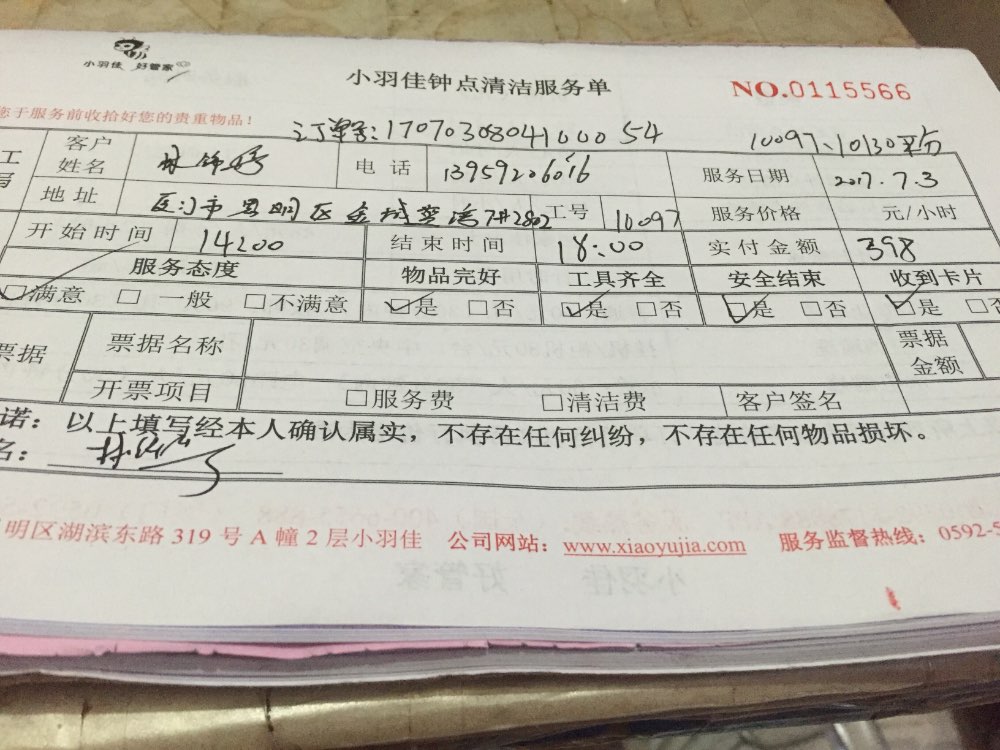 小羽佳 好管家
小羽佳钟点清洁服务单
NO.0115566
您于服务前收拾好您的贵重物品!
订单号:1707030804100054
10097、10130平分
客户姓名 电话 13959206016 服务日期 2017.7.3
地址 厦门市思明区金域蓝湾7#2802 工号 10097 服务价格 元/小时
开始时间 14:00 结束时间 18:00 实付金额 398
服务态度 物品完好 工具齐全 安全结束 收到卡片
☑满意 □一般 □不满意 ☑是 □否 ☑是 □否 ☑是 □否 ☑是 □否
票据 票据名称 票据金额
开票项目 □服务费 □清洁费 客户签名
诺:以上填写经本人确认属实,不存在任何纠纷,不存在任何物品损坏。
名:
明区湖滨东路 319 号 A 幢 2 层小羽佳 公司网站:www.xiaoyujia.com 服务监督热线:0592-5